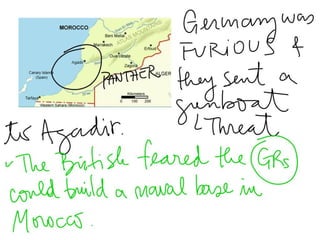 MOROCCO
Beni Mellal
Marrakech
Erfoud
Ouarzazate
Agadir
Zagora
Canary Islands (Spain)
Tarfaya
ALGERIA
Western Sahara (Morocco)
Kilometers
0 100 200
PANTHER
Germany was
FURIOUS &
they sent a
gunboat
↳ Threat
to Agadir.
- The British feared the GRs
could build a naval base in
Morocco.